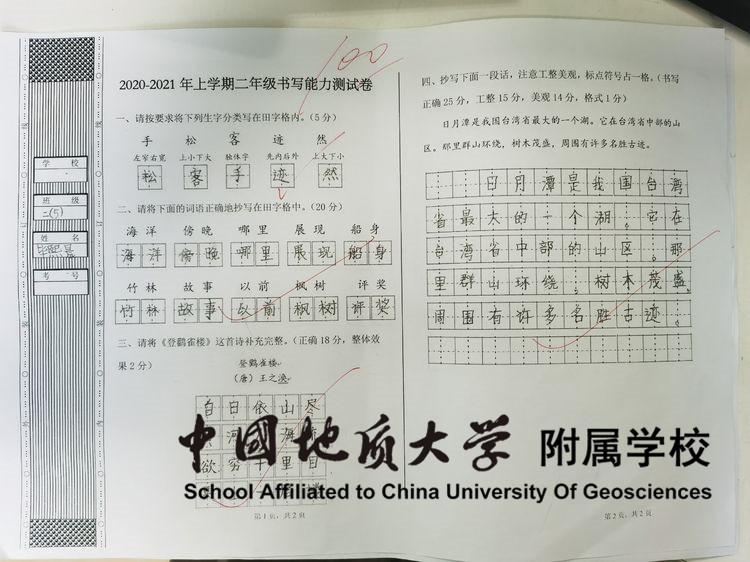 100
2020-2021年上学期二年级书写能力测试卷
学 校
班 级
二(5)
姓 名
考 号
一、请按要求将下列生字分类写在田字格内。(5分)
手 松 客 迹 然
左窄右宽 上小下大 独体字 先内后外 上大下小
松 客 手 迹 然
二、请将下面的词语正确地抄写在田字格中。(20分)
海洋 傍晚 哪里 展现 船身
海洋 傍晚 哪里 展现 船身
竹林 故事 以前 枫树 评奖
竹林 故事 以前 枫树 评奖
三、请将《登鹳雀楼》这首诗补充完整。(正确18分，整体效
果2分)
登鹳雀楼
(唐)王之涣
白日依山尽
河 海
欲穷千里目
第1页，共2页
四、抄写下面一段话，注意工整美观，标点符号占一格。(书写
正确25分，工整15分，美观14分，格式1分)
日月潭是我国台湾省最大的一个湖。它在台湾省中部的山
区。那里群山环绕，树木茂盛，周围有许多名胜古迹。
日月潭是我国台湾
省最大的一个湖。它在
台湾省中部的山区。那
里群山环绕，树木茂盛，
周围有许多名胜古迹。
第2页，共2页
中國地质大学 附属学校
School Affiliated to China University Of Geosciences